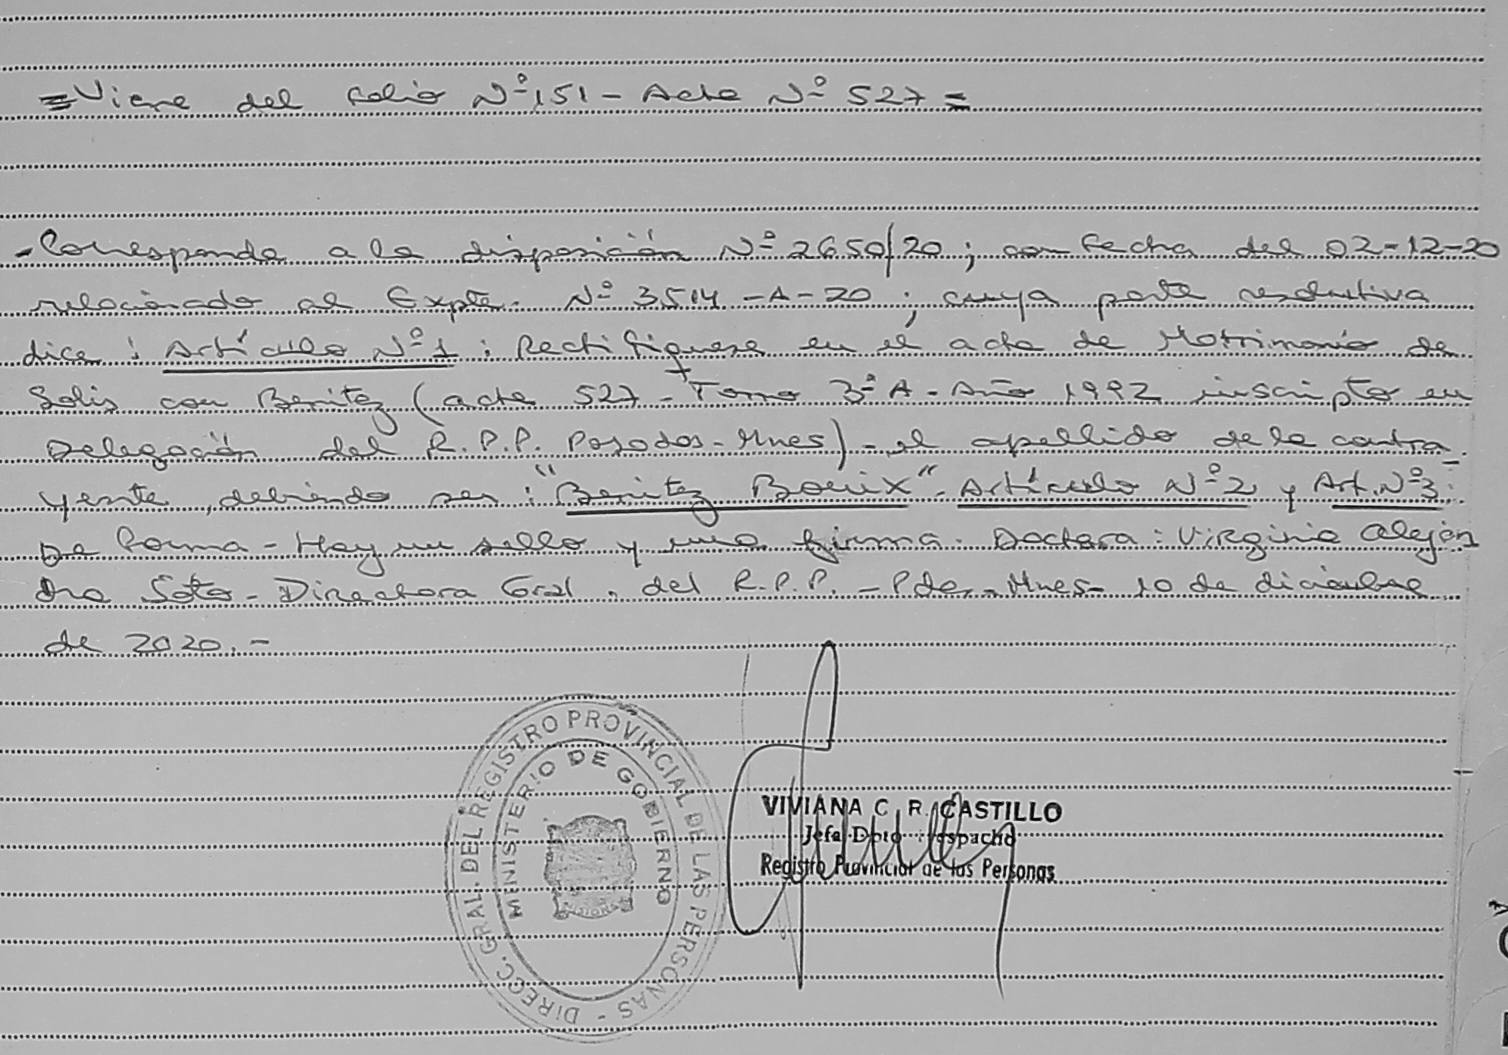 =Viene del folio Nº 151 - Acta Nº 527=
-Corresponde a la disposición Nº 2650/20; con fecha del 02-12-20
relacionado al Expte. Nº 3514-A-20; cuya parte resolutiva
dice: Artículo Nº 1: Rectifíquese en el acta de Matrimonio de
Solis con Benitez (acta 527-Tomo 3º A-Año 1992 inscripto en
Delegación del R.P.P. Posadas-Mnes)-el apellido de la contra
yente, debiendo ser: "Benitez Bouix". Artículo Nº 2 y Art. Nº 3:
De forma-Hay un sello y una firma. Doctora: Virginia Alejan
dra Soto-Directora Gral. del R.P.P.-Pdas-Mnes- 10 de diciembre
de 2020.-
DIRECC. GRAL. DEL REGISTRO PROVINCIAL DE LAS PERSONAS -
MINISTERIO DE GOBIERNO
VIVIANA C. R. CASTILLO
Jefa Dpto Despacho
Registro Provincial de las Personas